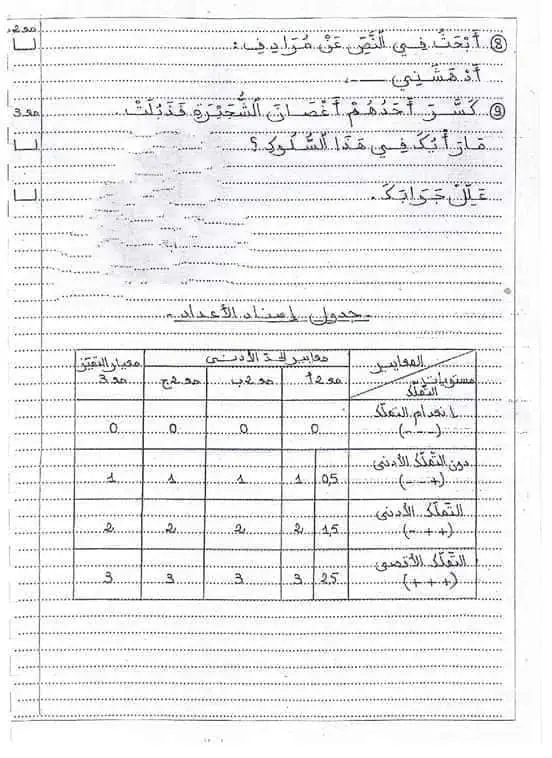 ⑧ أَبْحَثُ فِي النَّصِّ عَنْ مُرَادِفِ : مع2
أَدْهَشَنِي ـــ
⑨ كَسَّرَ أَحَدُهُمْ أَغْصَانَ الشُّجَيْرَةِ فَذَبُلَتْ مع3
مَا رَأْيُكَ فِي هَذَا السُّلُوكِ ؟
عَلِّلْ جَوَابَكَ .
- جدول إسناد الأعداد -
المعايير معايير الحدّ الأدنى معيار التميّز
مستويات التملّك مع2أ مع2ب مع2ج مع3
انعدام التملّك
(- - -) 0 0 0 0
دون التملّك الأدنى
(+ - -) 0,5 1 1 1 1
التملّك الأدنى
(+ + -) 1,5 2 2 2 2
التملّك الأقصى
(+ + +) 2,5 3 3 3 3